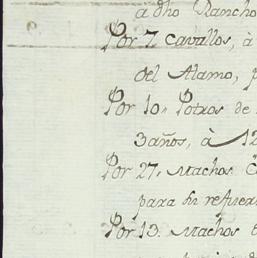 a dho Rancho
Por 7 Cavallos, à
del Alamo, p
Por 10,, Potros de
3 años, à 12
Por 27,, Machos
para su refuer
Por 13. Machos